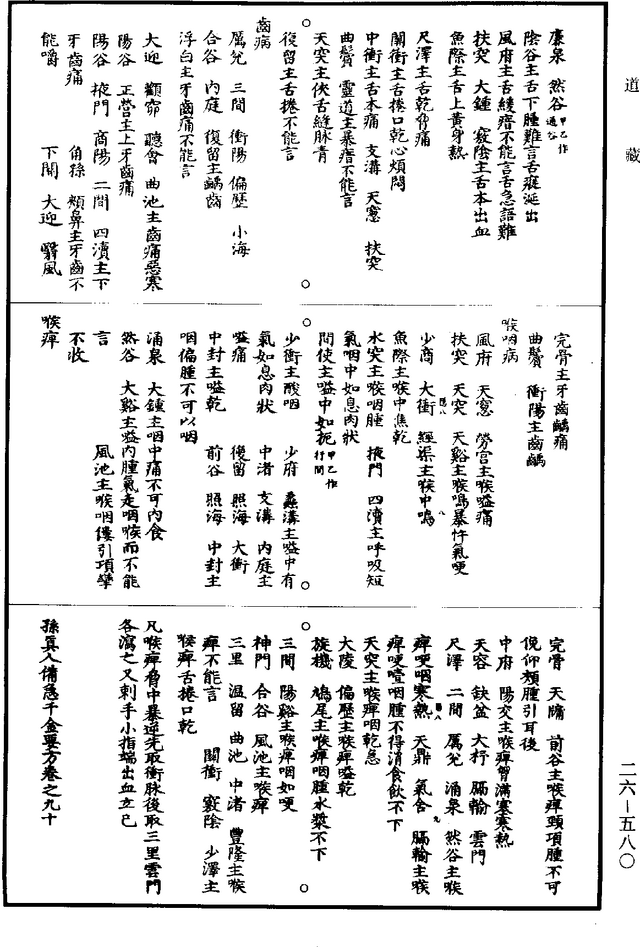 道藏
廉泉　然谷甲乙作通谷
陰谷主舌下腫難言舌瘲涎出
風府主舌緩瘖不能言舌急語難
扶突　大鍾　竅陰主舌本出血
魚際主舌上黃身熱
尺澤主舌乾脅痛
關衝主舌捲口乾心煩悶
中衝主舌本痛　支溝　天窻　扶突
曲鬢　靈道主暴瘖不能言
天突主俠舌縫脉青
復留主舌捲不能言
齒病
厲兌　三間　衝陽　偏歷　小海
合谷　內庭　復留主齲齒
浮白主牙齒痛不能言
大迎　顴窌　聽會　曲池主齒痛惡寒
陽谷　正營主上牙齒痛
陽谷　掖門　商陽　二間　四瀆主下
牙齒痛　角孫　頰鼻主牙齒不
能嚼　下關　大迎　翳風
完骨主牙齒齲痛
曲鬢　衝陽主齒齲
喉咽病
風府　天窻　勞宮主喉嗌痛
扶突　天突　天谿主喉鳴暴忤氣哽
少商　大衝　經渠主喉中鳴
魚際主喉中焦乾
水突主喉咽腫　掖門　四瀆主呼吸短
氣咽中如息肉狀
間使主嗌中如扼甲乙作行間
少衝主酸咽　少府　蠡溝主嗌中有
氣如息肉狀　中渚　支溝　內庭主
嗌痛　復留　照海　大衝
中封主嗌乾　前谷　照海　中封主
咽偏腫不可以咽
涌泉　大鍾主咽中痛不可內食
然谷　大谿主嗌內腫氣走咽喉而不能
言　風池主喉咽僂引項攣
不收
喉痺
完骨　天牖　前谷主喉痺頸項腫不可
俛仰頰腫引耳後
中府　陽交主喉痺胷滿塞寒熱
天容　缺盆　大杼　膈輸　雲門
尺澤　二間　厲兌　涌泉　然谷主喉
痺哽咽寒熱　天鼎　氣舍　膈輸主喉
痺哽噎咽腫不得消食飲不下
天突主喉痺咽乾急
大陵　偏歷主喉痺嗌乾
旋機　鳩尾主喉痺咽腫水漿不下
三間　陽谿主喉痺咽如哽
神門　合谷　風池主喉痺
三里　溫留　曲池　中渚　豐隆主喉
痺不能言　關衝　竅陰　少澤主
喉痺舌捲口乾
凡喉痺脅中暴逆先取衝脉後取三里雲門
各瀉之又刺手小指端出血立已
孫真人備急千金要方卷之九十
二六―五八〇